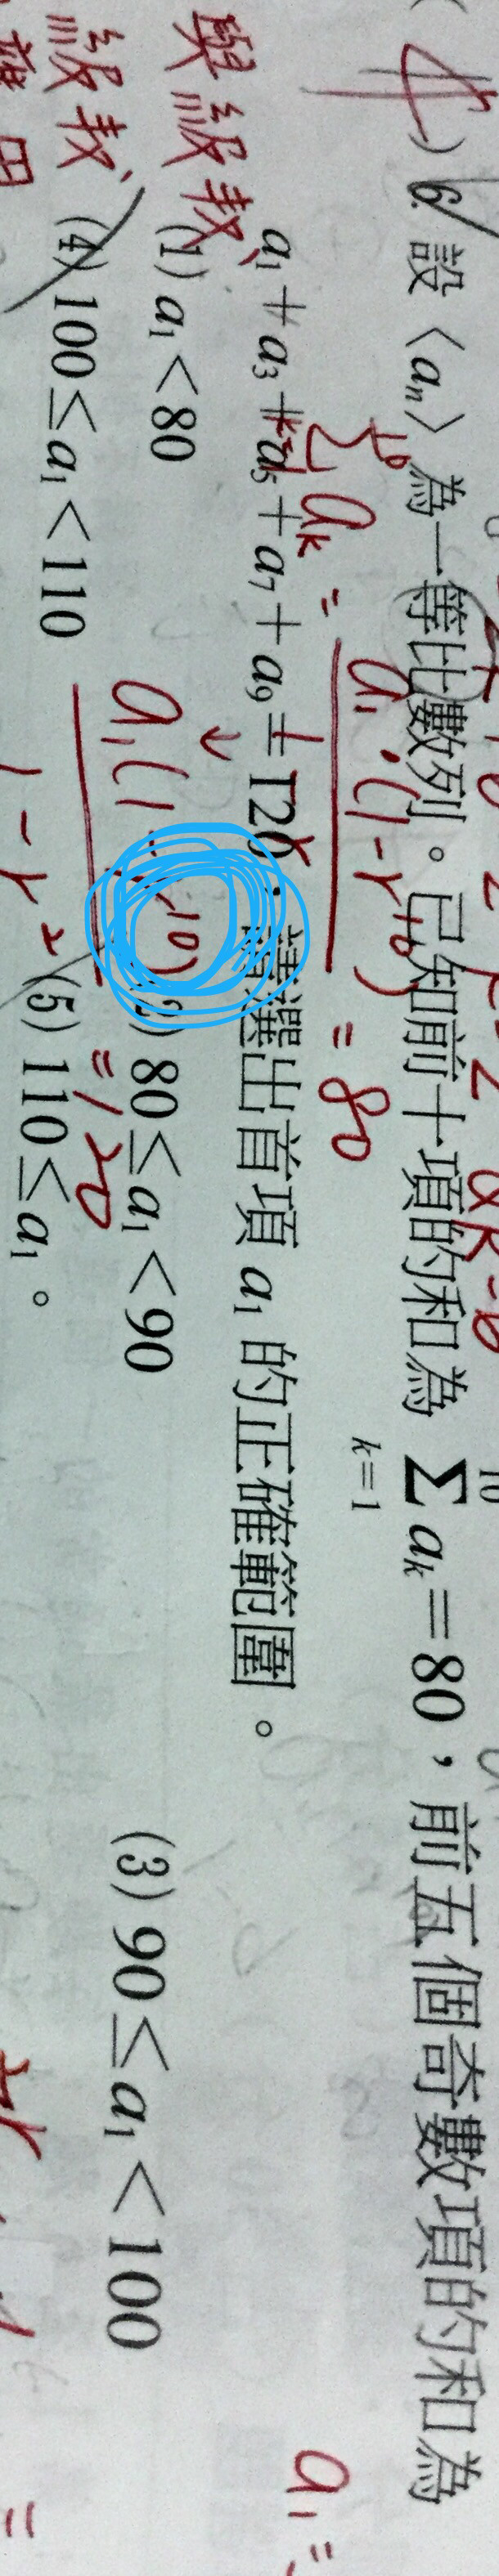 6. 設〈aₙ〉為一等比數列。已知前十項的和為 ∑ₖ₌₁¹⁰ aₖ=80,前五個奇數項的和為
a₁+a₃+a₅+a₇+a₉=120,請選出首項 a₁ 的正確範圍。
(1) a₁<80 (2) 80≤a₁<90 (3) 90≤a₁<100
(4) 100≤a₁<110 (5) 110≤a₁。
4
與級数
級数
aₖ = a₁·(1-r¹⁰) = 80
1-r
a₁(1-r¹⁰) = 120
1-r²
a₁=